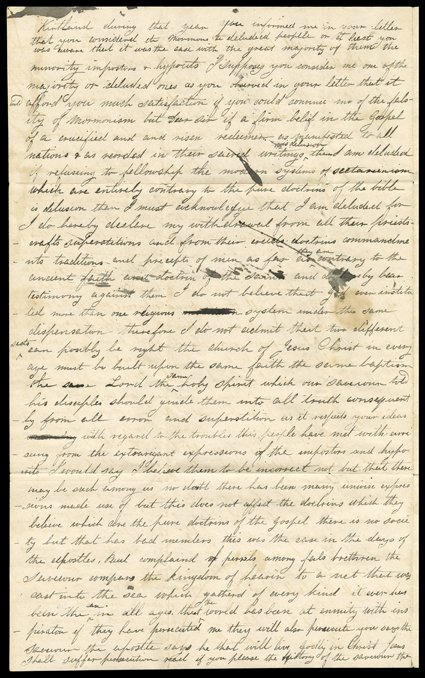 Kirtland during that year you informed me in your letter
that you considered the mormons to deluded people or at least you
was aware that it was the case with the great majority of them the
minority impostors & hypocrits I Suppose you consider me one of the
majority or deluded ones as you observed in your letter that it
would afford you much satisfaction if you could convince me of the fals
ity of Mormonism but Dear Sir if a firm belief in the Gospel
of a crucified and and risen redeemer as manifested to all
nations & as recorded in their sacred writings was delusion then I am deluded
if refusing to fellowship the modern systems of sectarianism
which are entirely contrary to the pure doctrins of the bible
is delusion then I must acknowlege that I am deluded for
I do hereby declare my withdrawal from all their priest-
crafts superstitions and from their doctrins commandme
nts traditions and precepts of men as far as contrary to the
ancient faith and doctrin of the Saints and do hereby bear
testimony against them I do not believe that God ever institu
ted more than one religious system under the same
dispensation therefore I do not admit that two different
sects can posibly be right the church of Jesus Christ in every
age must be built upon the same faith the same baptism
the same Lord the same holy spirit which our saveiour
his disciples should guide them into all truth consequent
ly from all error and superstition as it respects your ideas
with regard to the troubles this people have met with arri
sung from the extravigant expressions of the impostors and hypo
crits I would say I believe them to be incorrect not but that there
may be such among us no doubt there has been many unwise expres
sions made use of but this does not affect the doctrins which they
believe which are the pure doctrins of the Gospel there is no socie
ty but that has bad members this was the case in the days of
the apostles. Paul complaind of perrels among fals brethren the
Saveiour compars the kingdom of heavin to a net that was
cast into the sea which gatherd of every kind it ever has
been the same in all ages. the world has been at enmity with ins
piration if they have persecuted me they will also persecute you says the
saveiour the apostle says he that will live godly in Christ Jesus
shall suffer persecution read if you please the history of the saveiour the